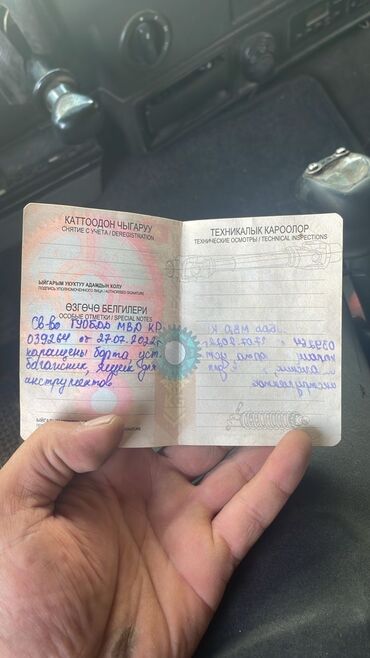 КАТТООДОН ЧЫГАРУУ
СНЯТИЕ С УЧЕТА / DEREGISTRATION
ЫЙГАРЫМ УКУКТУУ АДАМДЫН КОЛУ
ПОДПИСЬ УПОЛНОМОЧЕННОГО ЛИЦА / AUTHORISED SIGNATURE
ӨЗГӨЧӨ БЕЛГИЛЕРИ
ОСОБЫЕ ОТМЕТКИ / SPECIAL NOTES
Св-во ГУОБДД МВД КР
039264 от 27.07.2022г
наращены борта, уст.
ящик для
инструментов
ТЕХНИКАЛЫК КАРООЛОР
ТЕХНИЧЕСКИЕ ОСМОТРЫ / TECHNICAL INSPECTIONS